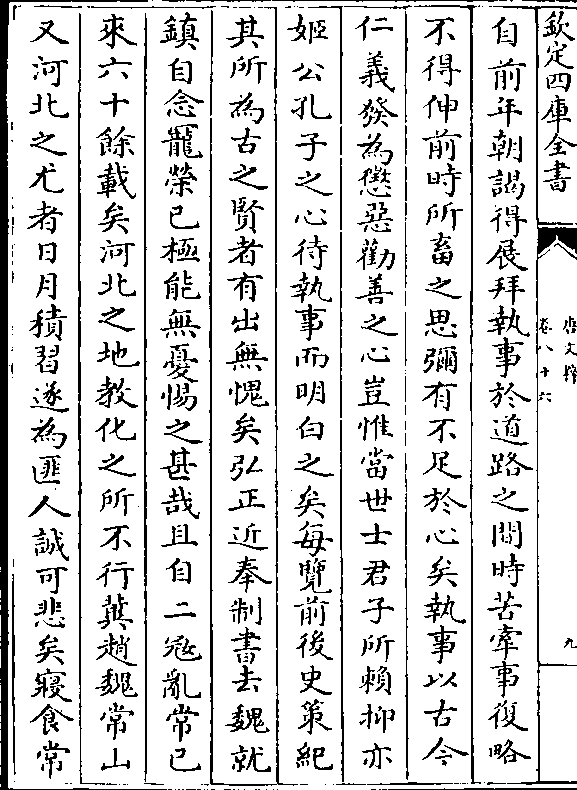 欽定四庫全書
唐文粹
卷八十六
九
自前年朝謁得展拜執事於道路之間時苦牽事復略
不得伸前時所畜之思彌有不足於心矣執事以古今
仁義發為懲惡勸善之心豈惟當世士君子所賴抑亦
姬公孔子之心待執事而明白之矣每覽前後史策紀
其所為古之賢者有出無愧矣弘正近奉制書去魏就
鎮自念寵榮已極能無憂惕之甚哉且自二宼亂常已
來六十餘載矣河北之地教化之所不行冀趙魏常山
又河北之尤者日月積習遂為匪人誠可悲矣寢食常